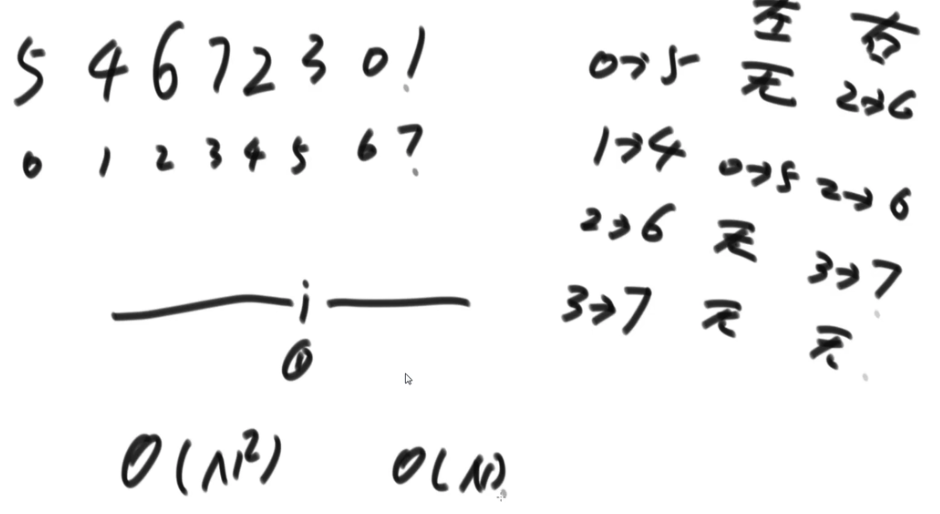 5 4 6 7 2 3 0 1
0 1 2 3 4 5 6 7
i
O(N²) O(N)
左 右
0→5 无 2→6
1→4 0→5 2→6
2→6 无 3→7
3→7 无 无